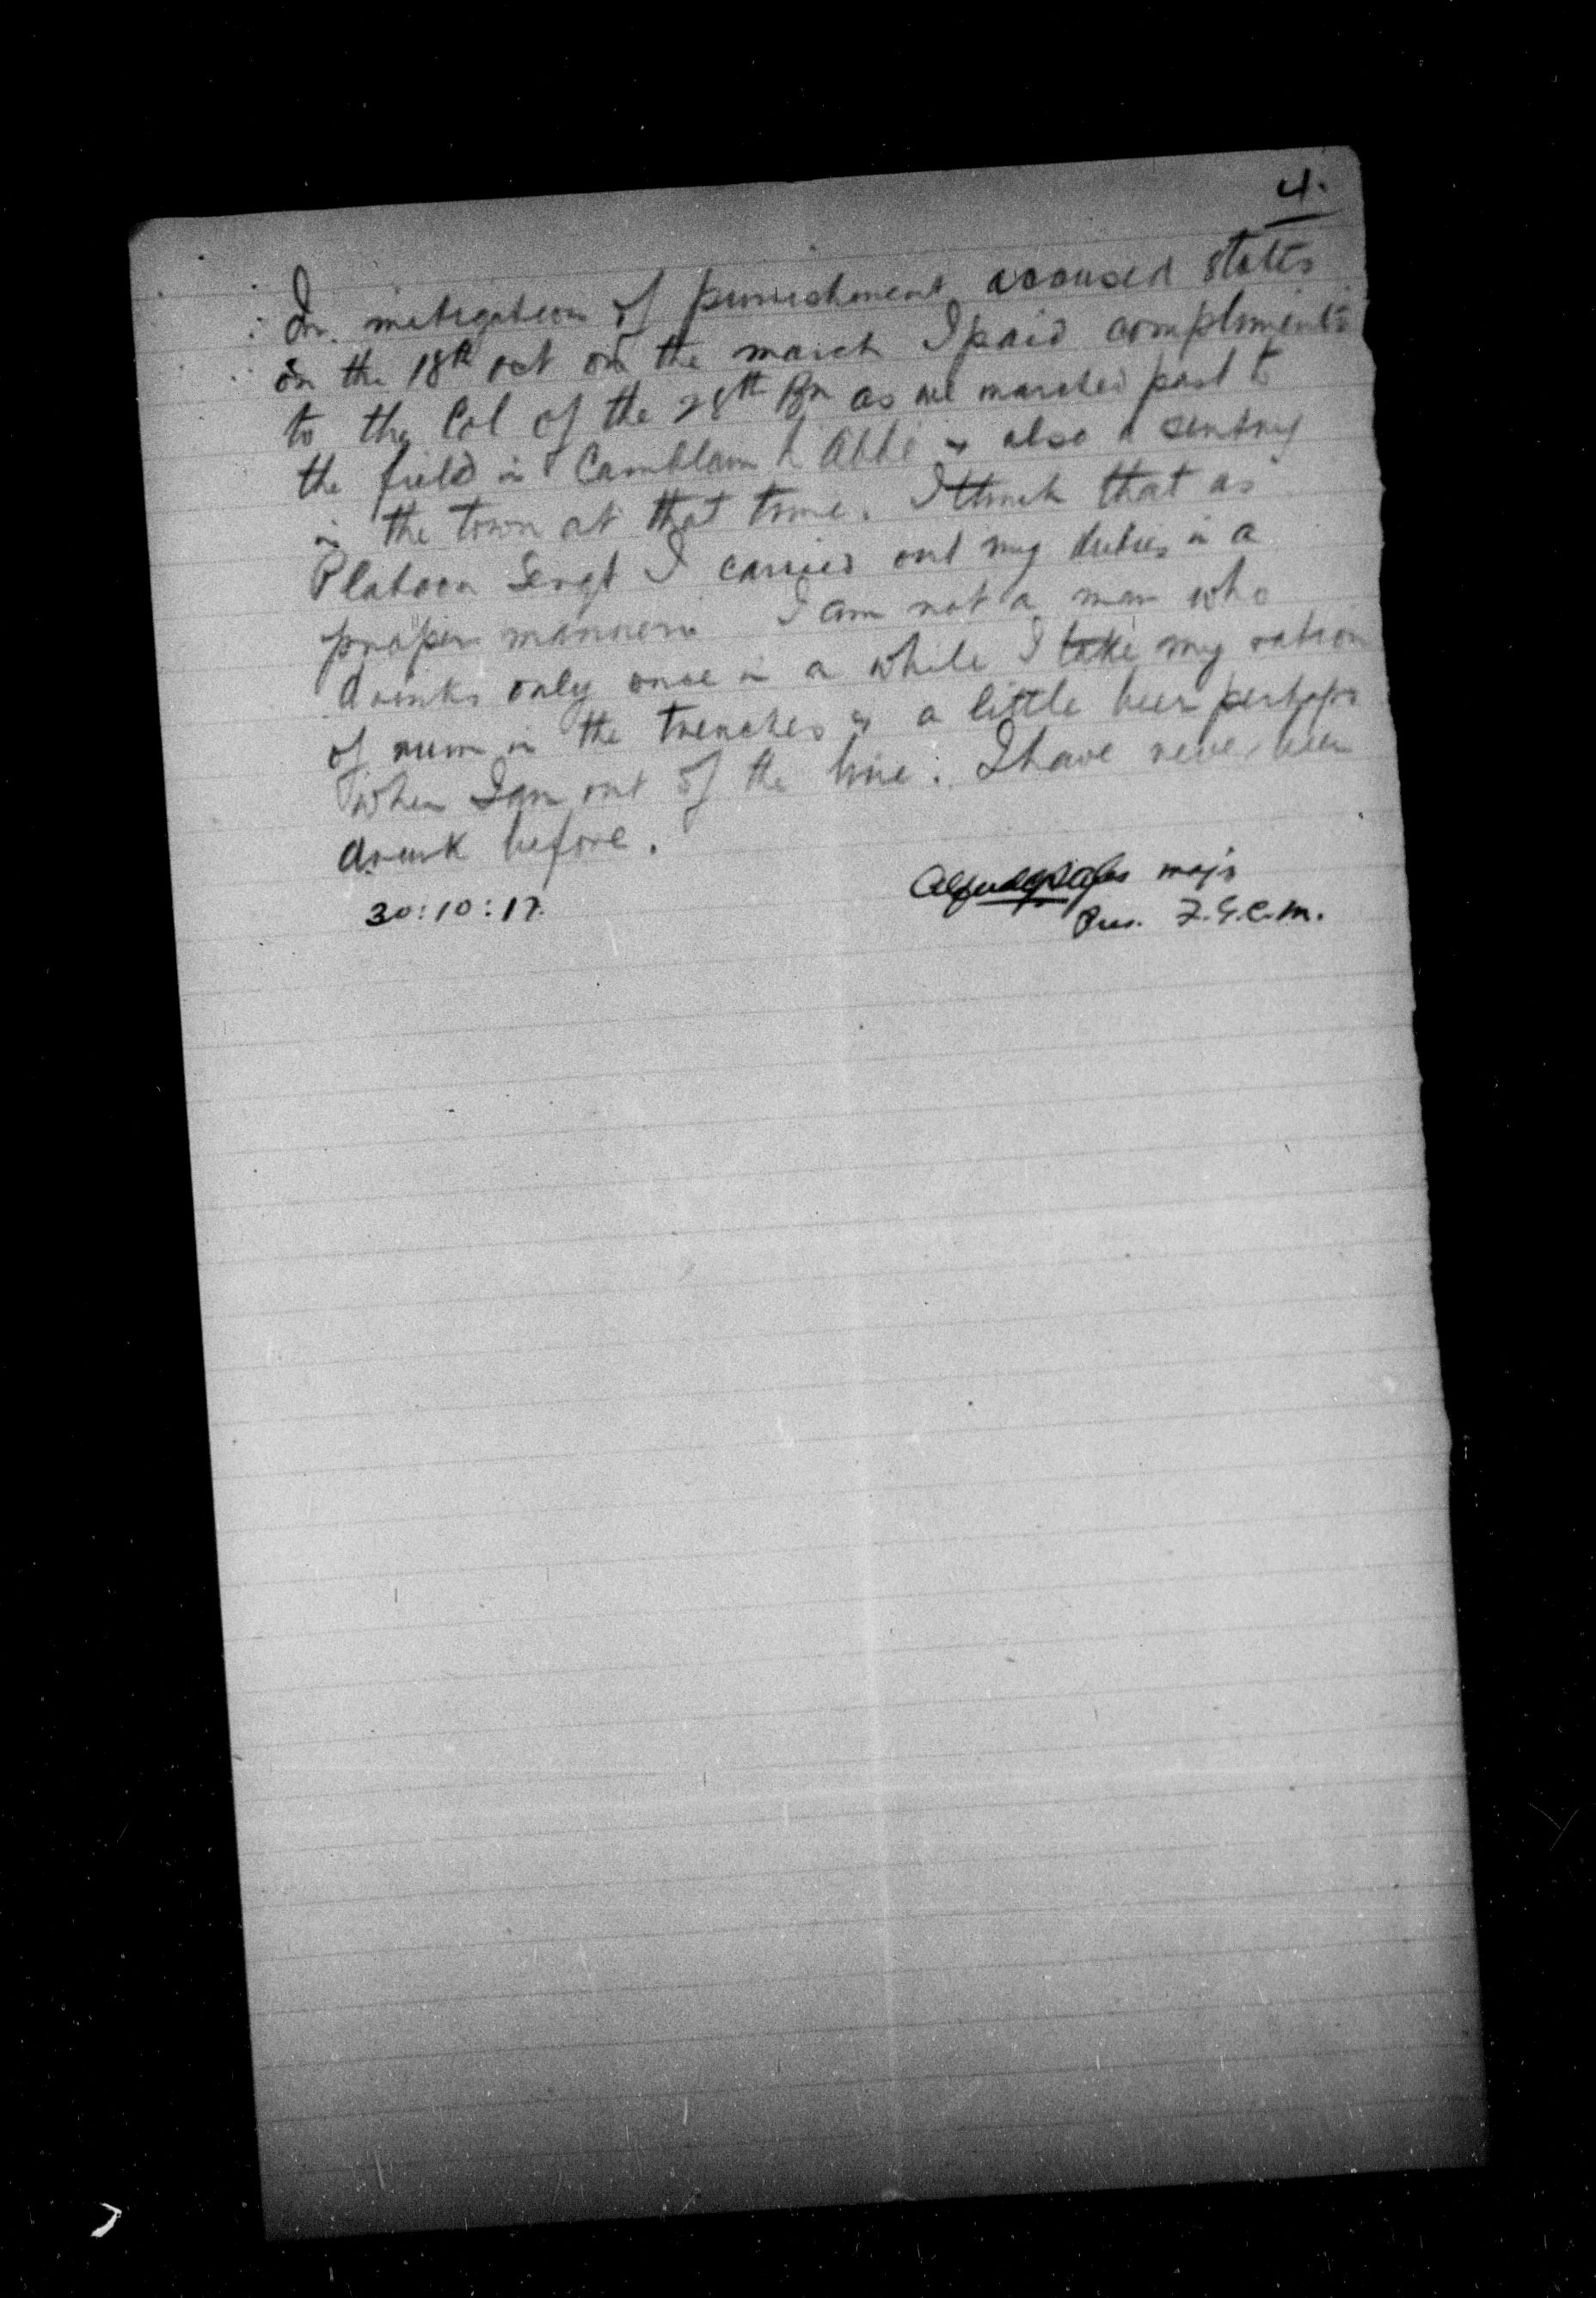 4.
In mitigation of punishment accused states
on the 18th oct on the march I paid compliments
to the Col of the 28th Bn as we marched past to
the field in Camblain L'Abbé & also a sentry
in the town at that time. I think that as
Platoon Sergt I carried out my duties in a
proper manner. I am not a man who
drinks only once in a while I take my ration
of rum in the trenches & a little beer perhaps
when I am out of the line. I have never been
drunk before.
30:10:17.
majr
Pres. F.G.C.M.